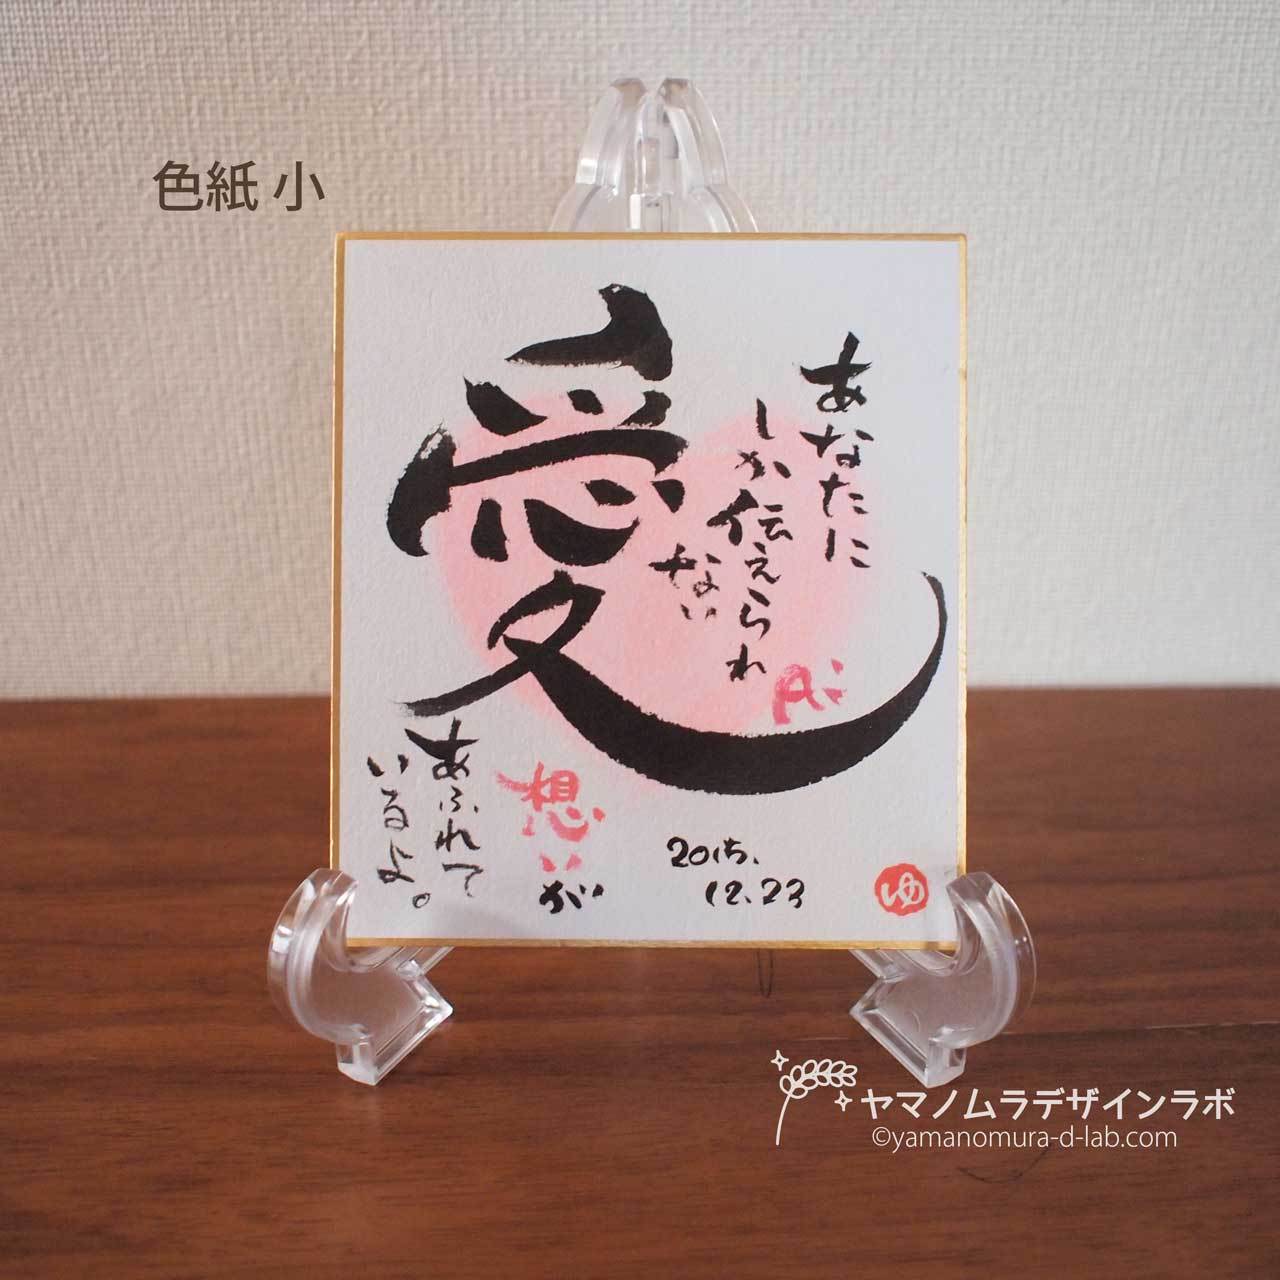 色紙 小
愛
あなたに
しか伝えられ
ない
Ai
想いが
あふれて
いるよ。
2015.
12.23
ゆ
ヤマノムラデザインラボ
©yamanomura-d-lab.com